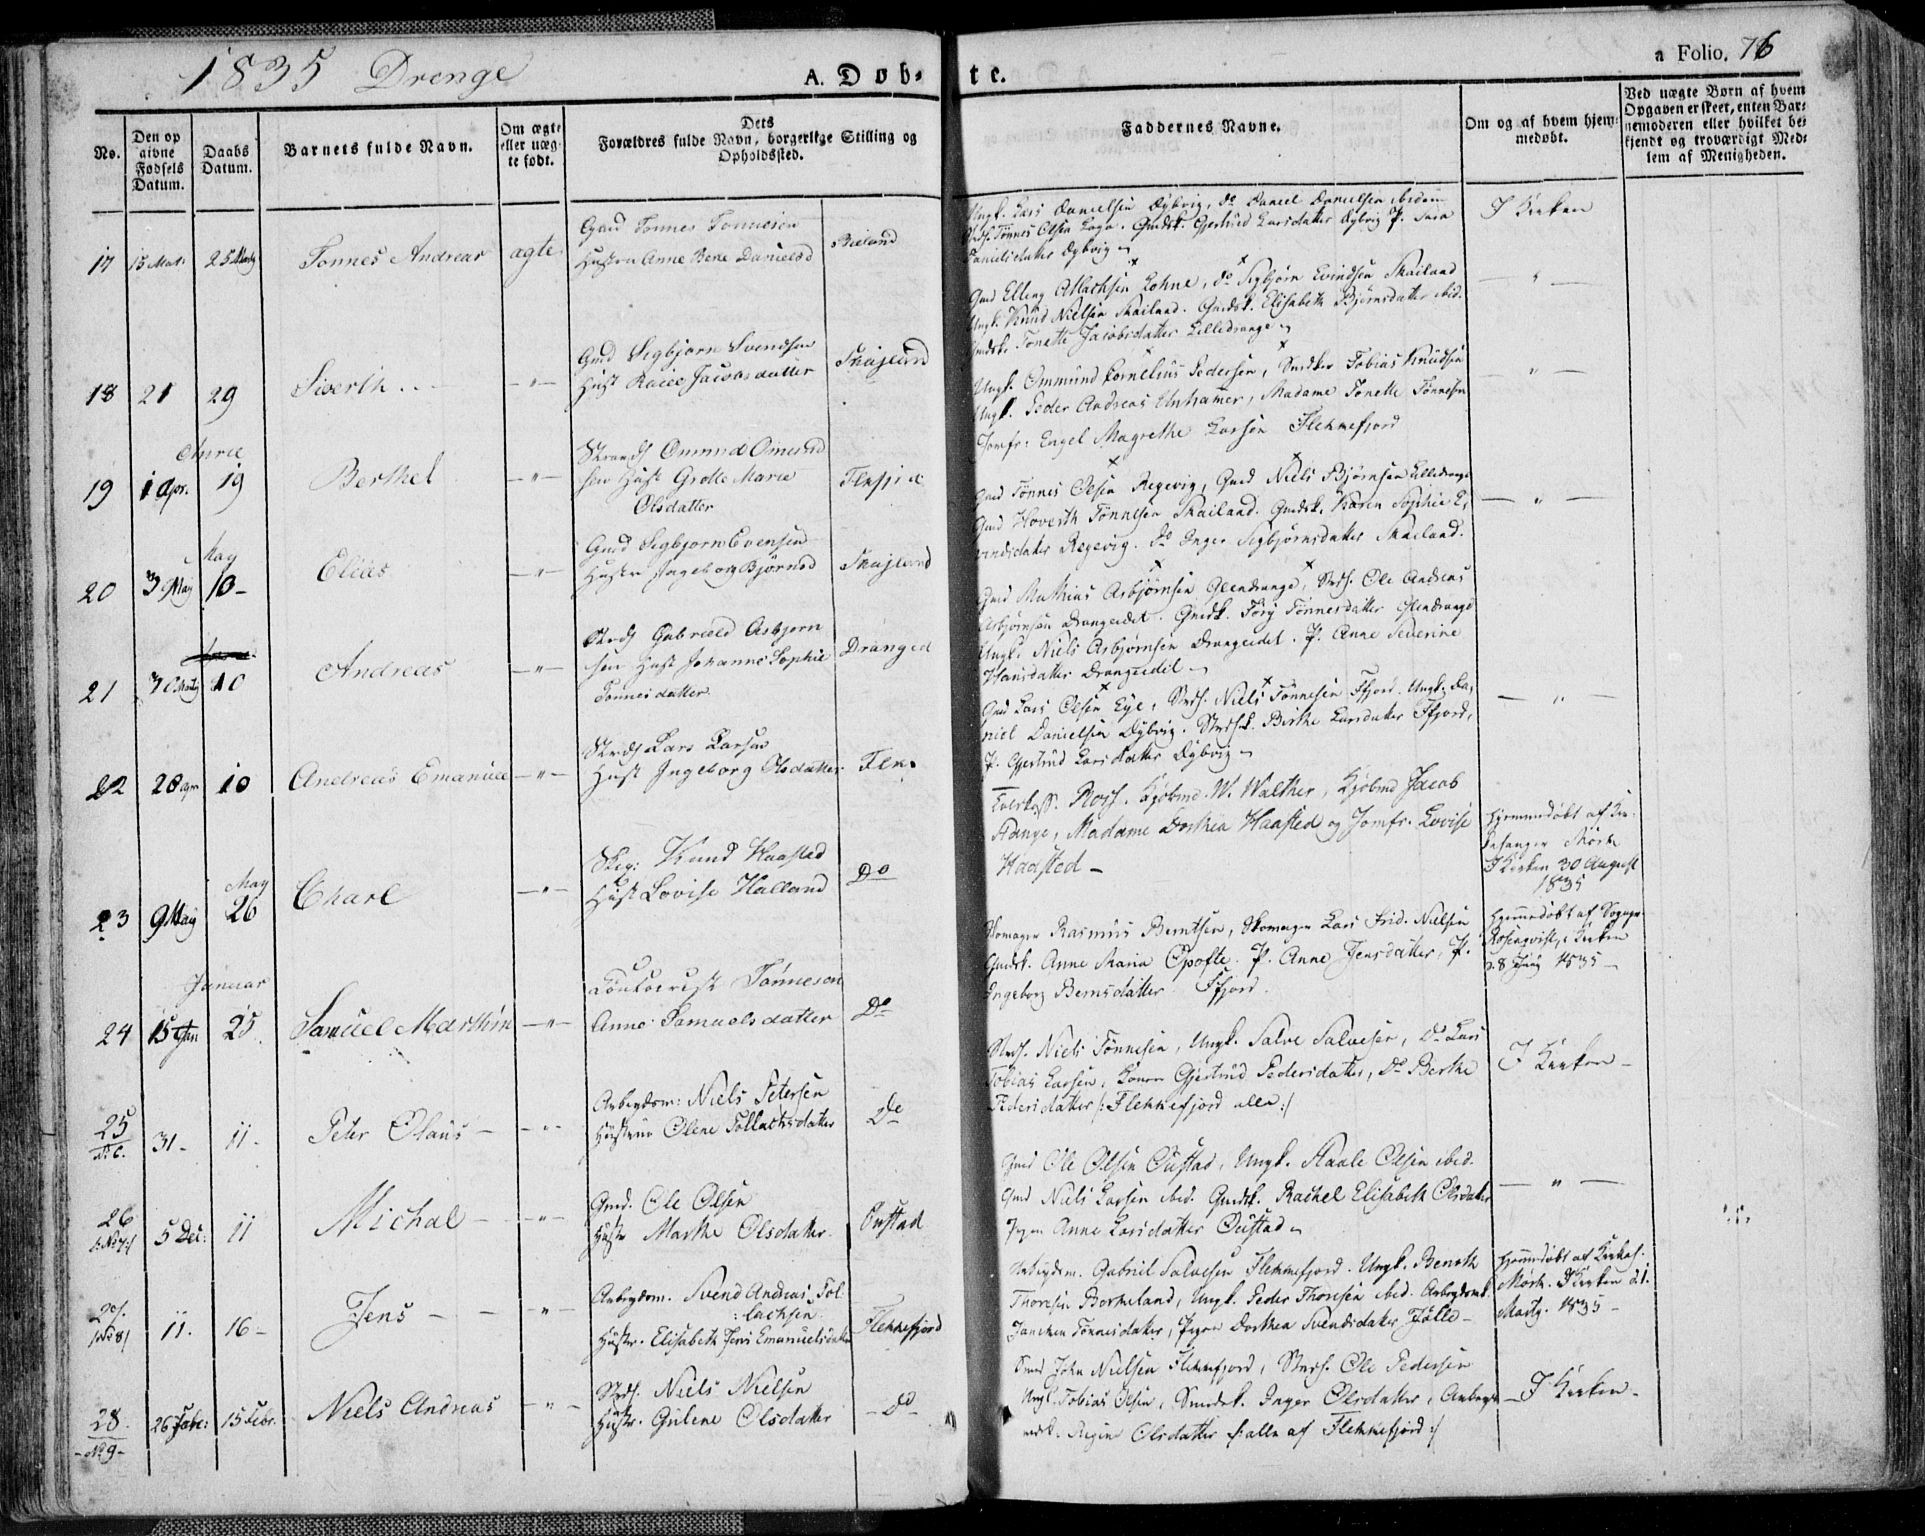 1835 Drenge
A. Døb-
te.
a Folio. 76
No.
Den op
givne
Fødsels
Datum.
Daabs
Datum.
Barnets fulde Navn.
Om ægte
eller uæg-
te født.
Dets
Forældres fulde Navn, borgerlige Stilling og
Opholdssted.
Faddernes Navne.
Om og af hvem hjem-
medøbt.
Ved uægte Børn af hvem
Opgaven er skeet, enten Bar-
nemoderen eller hvilket be-
kjendt og troværdigt Med-
lem af Menigheden.
17
25 Marty
Tønnes Andreas
ægte
Gmd Tønnes Tønnesen
Hustru Anne Bere Danielsd
Ungk. Lars Danielsen Dybvig, do Daniel Danielsen ibidem
Tønnes Olsen Loga. Gmdsk. Gjertrud Larsdatter Dybvig P. Sara
Danielsdatter Dybvig
I Kirken
18 21 29
Siverth
-"-
Gmd Sigbjørn Svendsen
Hust Jacobsdatter
Skajland
Gmd Elling Lohne, do Sigbjørn Evindsen Skailand
Ungk. Knud Nielsen Skailand. Gmdsk. Elisabeth Bjørnsdatter ibid.
Gmdsk. Tonette Jacobsdatter Lilledrange
-"-
19 1 Apr. 19
Berthel
-"-
Strands Ommund Ommund
sen Hust Grethe Marie
Olsdatter
Ungk. Ommund Cornelius Pedersen, Smdker Tobias Knudsen
Ungk. Peder Andreas, Madame Tonette Tønnesen
Jomfr: Engel Magrethe Larsen Flekkefjord
-"-
20 3 May 10-
May
Elias
-"-
Gmd Sigbjorn Evensen
Hustr Ingeborg Bjørnsd
Skajland
Gmd Tønnes Olsen Regevig, Gmd Niels Bjørnsen Lilledrange
Gmd Hoverth Tønnesen Skailand. Gmdsk. Karen Sophie E-
vindsdatter Regevig. do Inger Sigbjørnsdatter Skailand.
-"-
21 10
Andreas
-"-
Strds Gabrield Asbjørn
sen Hust Johanne Sophie
Tønnesdatter
Dranged
Gmd Mathias Asbjørnsen Glendrange, Strds. Ole Andreas
Asbjørnsen Drangeidet. Gmdsk. Tønnesdatter Glendrange
Ungk. Niels Asbjørnsen Drangeidet. P. Anne Severine
Hansdatter Drangeidet
22 28 apr 10
Andreas Emanuel
-"-
Strds Lars Larsen
Hust Ingeborg Olsdatter
Flek.
Gmd Lars Olsen Eye, Strds. Niels Tønnesen Ffjord. Ungk. Da-
niel Danielsen Dybvig. Strdsk. Birthe Larsdatter Ffjord,
P. Gjertrud Larsdatter Dybvig
-"-
23 9 May 26
May
Charl
-"-
Skip: Knud Haasted
Hust Lovise Halland
Do
Kjøbmd. W. Walther, Kjøbmd Jacob
Stange, Madame Dorthea Haasted og Jomfr. Lovise
Haasted -
Hjemmedøbt af Kir-
kesanger Mørk
I Kirken 30 August
1835
24 15 Jan 25
Januar
Samuel Marthin
-"-
Tønnesen
Anne Samuelsdatter
Do
Skomager Rasmus Berntsen, Skomager Lars Frid. Nielsen
Gmdsk. Anne Maria Opofte. P. Anne Jensdatter, P.
Ingeborg Berntsdatter Ffjord.
Hjemmedøbt af Sogne
Rosenqvist, i Kirken
1835
25 31- 11-
Peter Olaus -
-"-
Arbeydsm: Niels Petersen
Hustrue Olene Tollachsdatter
Do
Strds. Niels Tønnesen, Ungk. Salve Salvesen, Do Lars
Tobias Larsen, Konen Gjertrud Pedersdatter, Do Berthe
Pedersdatter /: Flekkefjord alle :/
I Kirken -
26
5 Dec: 11
Michal -
-"-
Gmd. Ole Olsen
Hustr Marthe Olsdatter.
Oustad
Gmd Ole Olsen Oustad, Ungk. Staale Olsen ibid.
Gmd Niels Larsen ibid. Gmdsk. Rachel Elisabeth Olsdatter
Pigen Anne Larsdatter Oustad
-"-
27.
/No 8/
11. 16-
Jens -
-"-
Arbeydsm. Svend Andreas Tol-
lachsen
Hustr. Elisabeth Jens Emanuelsdatter
Flekkefjord
Arbeydsm. Gabriel Salvesen Flekkefjord. Ungk. Benoth
Thoresen Borkeland, Ungk. Peder Thoresen ibid. Arbeydsmk.
Janchen Tønnesdatter, Pigen Dorthea Svendsdatter Fjølle -
Hjemmedøbt af Kirkes.
Mørk. I Kirken d 1.
Marty. 1835 -
28.
-No 9-
15 Febr.
Niels Andreas
-"-
Strds. Niels Nielsen
Hustr. Gulene Olsdatter
Do
Smed John Nielsen Flekkefjord, Strds. Ole Pedersen
Ungk. Tobias Olsen, Smedsk. Inger Olsdatter, Arbeyds-
mdk. Regine Olsdatter /: alle af Flekkefjord :/
I Kirken -